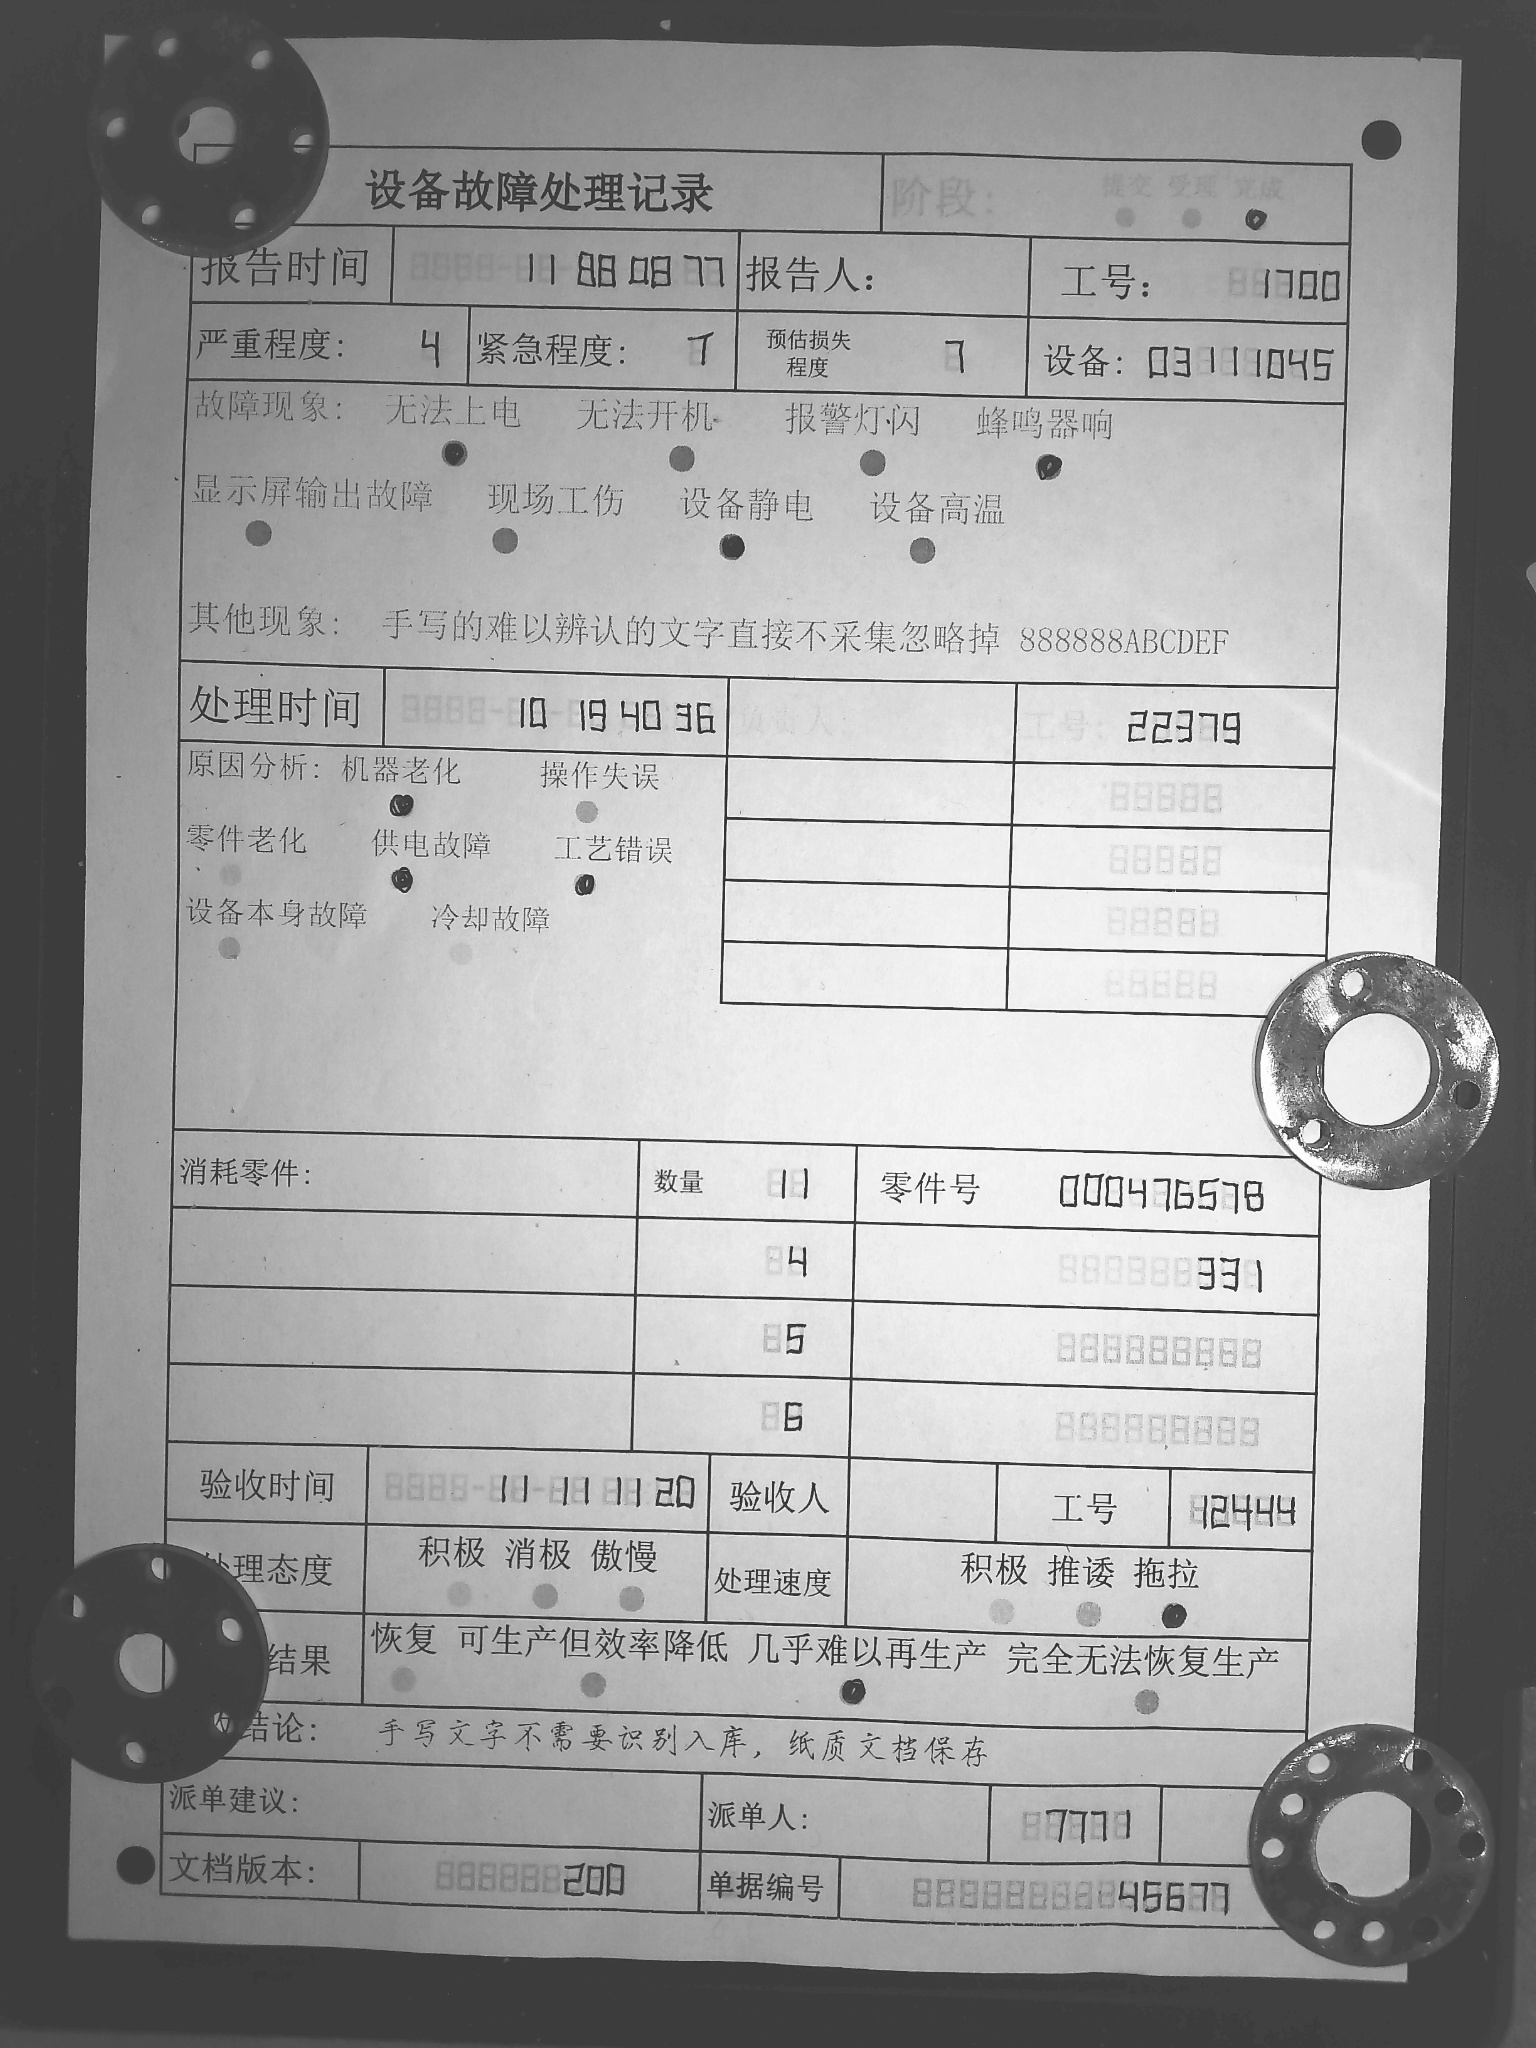 设备故障处理记录 阶段: 提交 受理 完成
报告时间 11 88 08 77 报告人: 工号: 1700
严重程度: 4 紧急程度: 7 预估损失程度 7 设备: 03111045
故障现象: 无法上电 无法开机 报警灯闪 蜂鸣器响
显示屏输出故障 现场工伤 设备静电 设备高温
其他现象: 手写的难以辨认的文字直接不采集忽略掉 888888ABCDEF
处理时间 10 19 40 36 负责人: 工号: 22379
原因分析: 机器老化 操作失误 88888
零件老化 供电故障 工艺错误 88888
设备本身故障 冷却故障 88888
88888
消耗零件: 数量 11 零件号 000476578
4 331
5 888888888
6 888888888
验收时间 11 11 11 20 验收人 工号 12444
处理态度 积极 消极 傲慢 处理速度 积极 推诿 拖拉
结果 恢复 可生产但效率降低 几乎难以再生产 完全无法恢复生产
结论: 手写文字不需要识别入库, 纸质文档保存
派单建议: 派单人: 7771
文档版本: 200 单据编号 45677